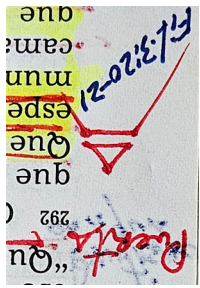 “Qu
Puerta
292
que
Que
espe
mun
cama
que
Fil, 3:20-21